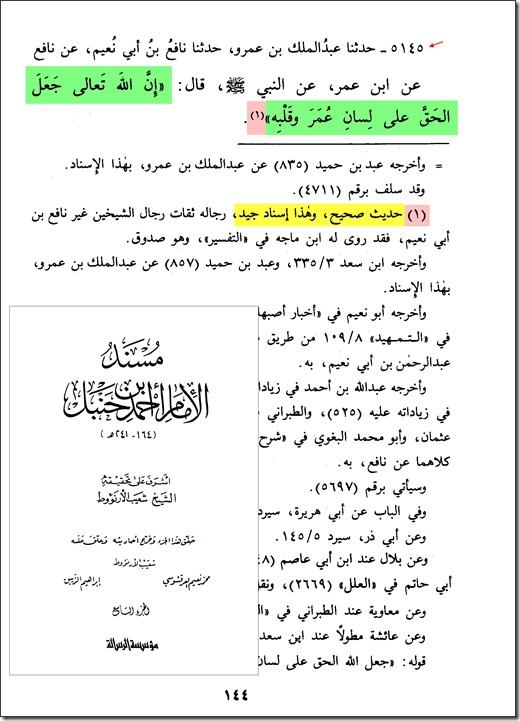 ٥١٤٥ - حدثنا عبدُالملك بن عمرو، حدثنا نافعُ بنُ أبي نُعيم، عن نافع
عن ابن عمر، عن النبي ﷺ، قال: «إِنَّ اللهَ تَعالى جَعَلَ
الحَقَّ على لِسانِ عُمَرَ وقَلْبِهِ»(١).
= وأخرجه عبد بن حميد (٨٣٥) عن عبدالملك بن عمرو، بهٰذا الإِسناد.
وقد سلف برقم (٤٧١١).
(١) حديث صحيح، وهٰذا إسناد جيد، رجاله ثقات رجال الشيخين غير نافع بن
أبي نعيم، فقد روى له ابن ماجه في «التفسير»، وهو صدوق.
وأخرجه ابن سعد ٣٣٥/٣، وعبد بن حميد (٨٥٧) عن عبدالملك بن عمرو،
بهٰذا الإِسناد.
وأخرجه أبو نعيم في «أخبار أصبها
في «التمهيد» ١٠٩/٨ من طريق
عبدالرحمٰن بن أبي نعيم، به.
وأخرجه عبدالله بن أحمد في زيادا
في زياداته عليه (٥٢٥)، والطبراني
عثمان، وأبو محمد البغوي في «شرح
كلاهما عن نافع، به.
وسيأتي برقم (٥٦٩٧).
وفي الباب عن أبي هريرة، سيرد
وعن أبي ذر، سيرد ١٤٥/٥.
وعن بلال عند ابن أبي عاصم (٤٨
أبي حاتم في «العلل» (٢٦٦٩)، ونق
وعن معاوية عند الطبراني في «ال
وعن عائشة مطولًا عند ابن سعد
قوله: «جعل الله الحق على لسان
مُسْنَدُ
الإمام أحمد بن حنبل
(١٦٤ - ٢٤١ هـ)
أشرف على تحقيقه
الشيخ شعيب الأرنؤوط
حقق هذا الجزء وخرج أحاديثه وعلق عليه
شعيب الأرنؤوط
محمد نعيم العرقسوسي إبراهيم الزيبق
الجزء التاسع
مؤسسة الرسالة
١٤٤